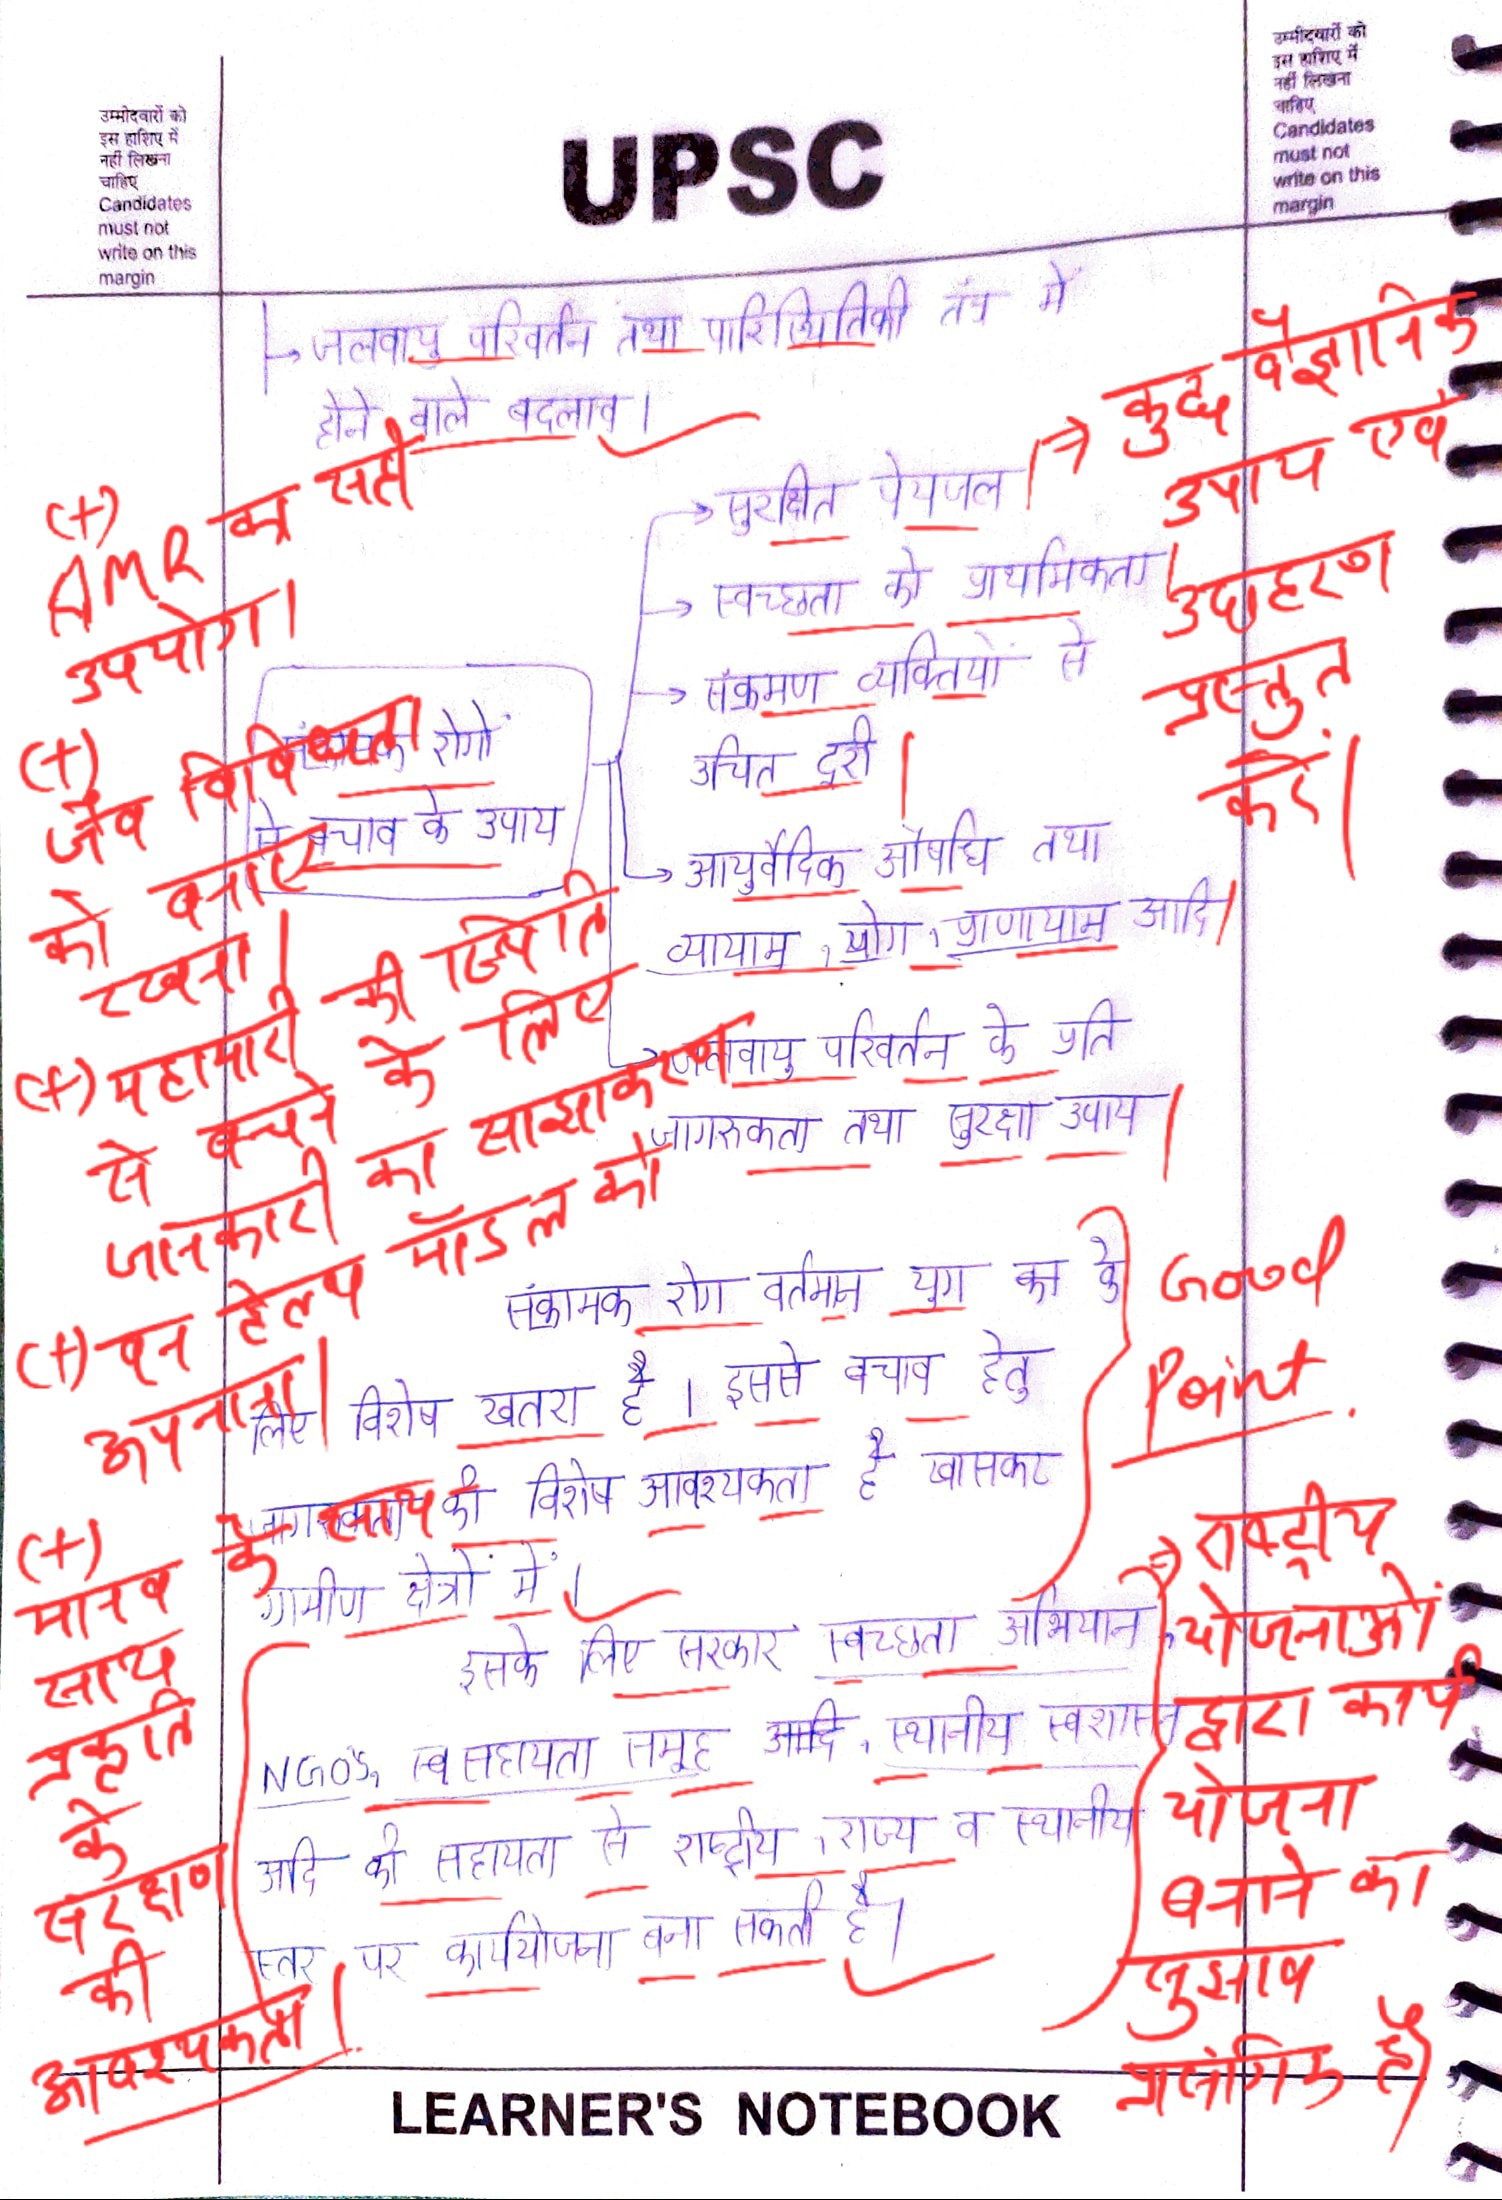 उम्मीदवारों को
इस हाशिए में
नहीं लिखना
चाहिए
Candidates
must not
write on this
margin
UPSC
उम्मीदवारों को
इस हाशिए में
नहीं लिखना
चाहिए
Candidates
must not
write on this
margin
जलवायु परिवर्तन तथा पारिस्थितिकी तंत्र में
होने वाले बदलाव।
संक्रामक रोगों
से बचाव के उपाय
सुरक्षित पेयजल
स्वच्छता को प्राथमिकता
संक्रमण व्यक्तियों से
उचित दूरी
आयुर्वेदिक औषधि तथा
व्यायाम, योग, प्राणायाम आदि
जलवायु परिवर्तन के प्रति
जागरुकता तथा सुरक्षा उपाय
संक्रामक रोग वर्तमान युग का के
लिए विशेष खतरा है। इससे बचाव हेतु
जागरुकता की विशेष आवश्यकता है खासकर
ग्रामीण क्षेत्रों में।
इसके लिए सरकार स्वच्छता अभियान,
NGO's, स्व सहायता समूह आदि, स्थानीय स्वशासन
आदि की सहायता से राष्ट्रीय, राज्य व स्थानीय
स्तर पर कार्ययोजना बना सकती है।
(+)
AMR का सही
उपयोग।
(+)
जैव विविधता
को बनाए
रखना।
(+) महामारी की स्थिति
से बचने के लिए
जानकारी का साझाकरण
(+) वन हेल्थ मॉडल को
अपनाना।
(+)
मानव के साथ
साथ
प्रकृति
के
संरक्षण
की
आवश्यकता।
⇒ कुछ वैज्ञानिक
उपाय एवं
उदाहरण
प्रस्तुत
करें।
Good
Point.
⇒ राष्ट्रीय
योजनाओं
द्वारा कार्य
योजना
बनाने का
सुझाव
प्रासंगिक है।
LEARNER'S NOTEBOOK